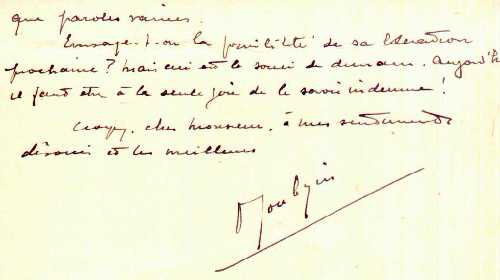 que paroles vaines.
Envisage-t-on la possibilité de sa libération
prochaine ? Mais ceci est le souci de demain. Aujourd'h
il faut être à la seule joie de le savoir indemne !
Croyez, cher monsieur, à mes sentiments
dévoués et les meilleurs